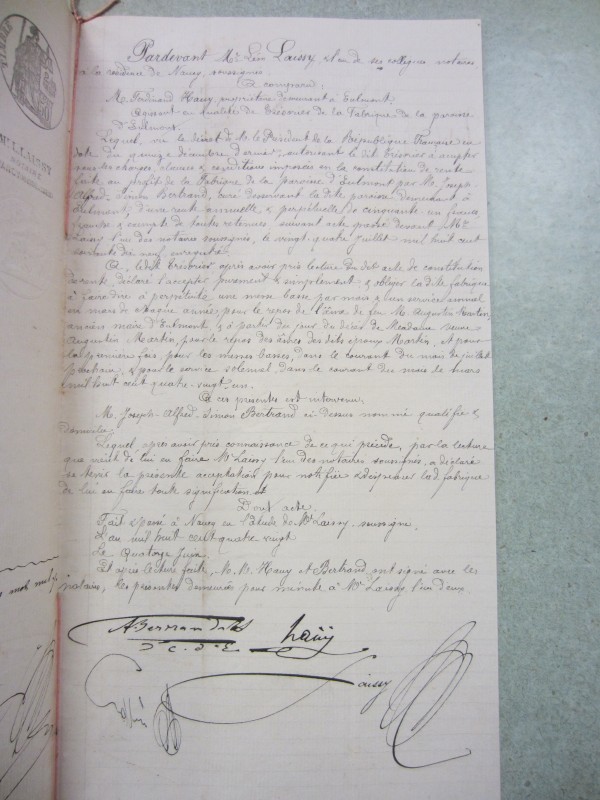 Pardevant Me Léon Laissy et un de ses collègues notaires
à la résidence de Nancy, soussignés
A comparu :
M. Ferdinand Haüy, propriétaire demeurant à Eulmont ;
Agissant en qualité de Trésorier de la Fabrique de la paroisse
d'Eulmont.
Lequel, vu le décret de M. le Président de la République Française en
date du quinze décembre dernier, autorisant le dit Trésorier à accepter
sous les charges, clauses & conditions imposées en la constitution de rente
faite au profit de la Fabrique de la paroisse d'Eulmont par M. Joseph-
Alfred-Simon Bertrand, curé desservant la dite paroisse demeurant à
Eulmont, d'une rente annuelle & perpétuelle de cinquante un francs
francs & exempte de toutes retenues suivant acte passé devant Me
Laissy l'un des notaires soussignés, le vingt quatre juillet mil huit cent
soixante dix neuf enregistré
A, le dit Trésorier après avoir pris lecture du dit acte de constitution
de rente, déclaré l'accepter purement & simplement, & obliger la dite fabrique
à faire dire à perpétuité une messe basse par mois & un service annuel
au mois de chaque année, pour le repos de l'âme de feu M. Augustin Martin,
ancien maire d'Eulmont, & à partir du jour du décès de Madame veuve
Augustin Martin, pour le repos des âmes des dits époux Martin, et pour
la première fois, pour les messes basses, dans le courant du mois de juillet
prochain, & pour le service solennel, dans le courant du mois de mars
mil huit cent quatre-vingt un.
A ces présentes est intervenu :
M. Joseph-Alfred-Simon Bertrand ci-dessus nommé qualifié &
domicilié ;
Lequel après avoir pris connaissance de ce qui précède, par la lecture
que vient de lui en faire Me Laissy l'un des notaires soussignés, a déclaré
se tenir la présente acceptation pour notifiée & dispenser lad. fabrique
de lui en faire toute signification
Dont acte.
Fait & passé à Nancy en l'étude de Me Laissy sussigné,
L'an mil huit cent quatre vingt
Le Quatorze Juin
Et après lecture faite, M.M. Haüy et Bertrand ont signé avec les
notaires, les présentes demeurées pour minute à Me Laissy l'un d'eux.
ABertrand
Haüy
d. c. d'E.
Laissy
TIMBRE
Me L. LAISSY
NOTAIRE